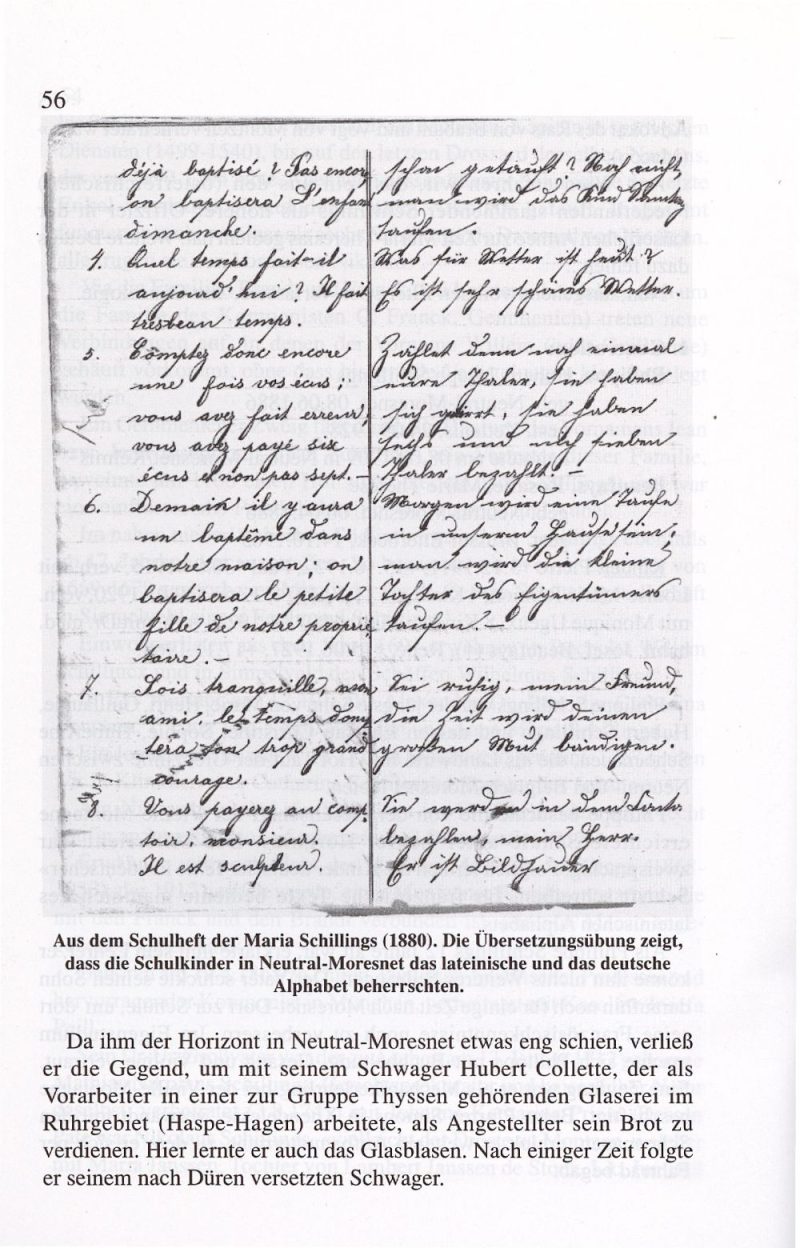 56
déjà baptisé? Pas encor,
on baptisera l'enfant
dimanche.
4. Quel temps fait-il
aujourd'hui? Il fait
tres beau temps.
5. Comptez donc encore
une fois vos écus;
vous avez fait erreur,
vous avez payé six
écus et non pas sept.
6. Demain il y aura
un baptême dans
notre maison; on
baptisera la petite
fille de notre proprié
taire. –
7. Sois tranquille, mon
ami, le temps domp
tera ton trop grand
courage.
8. Vous payerez au comp
toir, monsieur.
Il est sculpteur.
schon getauft? Noch nicht,
man wird das Kind Sonntag
taufen.
Was für Wetter ist heute?
Es ist sehr schönes Wetter.
Zählet denn noch einmal
eure Thaler, sie haben
sich geirrt, sie haben
sechs und nicht sieben
Thaler bezahlt. –
Morgen wird eine Taufe
in unserm Hause sein;
man wird die kleine
Tochter des Eigentümers
taufen. –
Sei ruhig, mein Freund,
die Zeit wird deinen
großen Mut bändigen.
Sie werden in dem
bezahlen, mein Herr.
Er ist Bildhauer
Aus dem Schulheft der Maria Schillings (1880). Die Übersetzungsübung zeigt,
dass die Schulkinder in Neutral-Moresnet das lateinische und das deutsche
Alphabet beherrschten.
Da ihm der Horizont in Neutral-Moresnet etwas eng schien, verließ
er die Gegend, um mit seinem Schwager Hubert Collette, der als
Vorarbeiter in einer zur Gruppe Thyssen gehörenden Glaserei im
Ruhrgebiet (Haspe-Hagen) arbeitete, als Angestellter sein Brot zu
verdienen. Hier lernte er auch das Glasblasen. Nach einiger Zeit folgte
er seinem nach Düren versetzten Schwager.